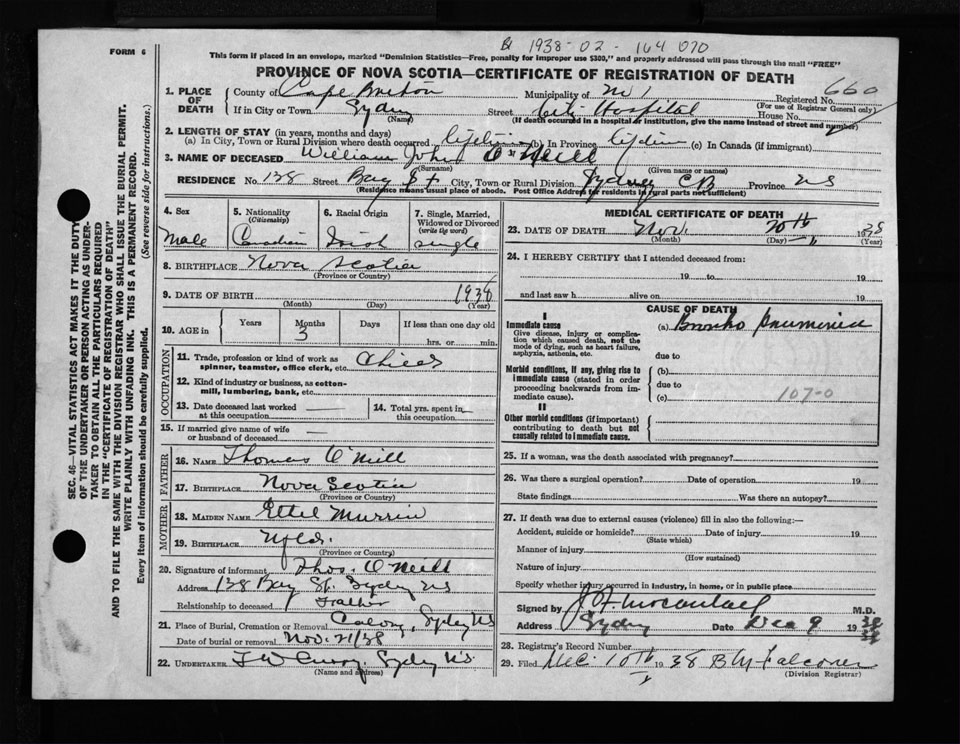 1938-02-164 070
FORM 6
This form if placed in an envelope, marked "Dominion Statistics—Free, penalty for improper use $300," and properly addressed will pass through the mail "FREE"
PROVINCE OF NOVA SCOTIA—CERTIFICATE OF REGISTRATION OF DEATH
660
1. PLACE OF DEATH
County of Cape Breton Municipality of Registered No.
(For use of Registrar General only)
If in City or Town Sydney Street City Hospital House No.
(Name) (If death occurred in a hospital or institution, give the name instead of street and number)
2. LENGTH OF STAY (in years, months and days)
(a) In City, Town or Rural Division where death occurred lifetime (b) In Province lifetime (c) In Canada (if immigrant)
3. NAME OF DECEASED William John O'Neill
(Surname) (Given name or names)
RESIDENCE No. 138 Street Bay St City, Town or Rural Division Sydney CB Province NS
(Residence means usual place of abode. Post Office Address for residents in rural parts not sufficient)
4. Sex
Male
5. Nationality (Citizenship)
Canadian
6. Racial Origin
Irish
7. Single, Married, Widowed or Divorced (write the word)
single
8. BIRTHPLACE Nova Scotia
(Province or Country)
9. DATE OF BIRTH 1938
(Month) (Day) (Year)
10. AGE in Years Months Days If less than one day old
3 hrs. or min.
OCCUPATION
11. Trade, profession or kind of work as spinner, teamster, office clerk, etc.
12. Kind of industry or business, as cotton-mill, lumbering, bank, etc.
13. Date deceased last worked at this occupation
14. Total yrs. spent in this occupation
15. If married give name of wife or husband of deceased
FATHER
16. NAME Thomas O'Neill
17. BIRTHPLACE Nova Scotia
(Province or Country)
MOTHER
18. MAIDEN NAME Ethel Murrin
19. BIRTHPLACE Nfld.
(Province or Country)
20. Signature of informant Thos. O'Neill
Address 138 Bay St. Sydney NS
Relationship to deceased Father
21. Place of Burial, Cremation or Removal Sydney NS
Date of burial or removal Nov. 21/38
22. UNDERTAKER Sydney NS.
(Name and address)
MEDICAL CERTIFICATE OF DEATH
23. DATE OF DEATH Nov. 20th 1938
(Month) (Day) (Year)
24. I HEREBY CERTIFY that I attended deceased from:
19 to 19
and last saw h alive on 19
CAUSE OF DEATH
I
Immediate cause
Give disease, injury or complication which caused death, not the mode of dying, such as heart failure, asphyxia, asthenia, etc.
(a) Broncho Pneumonia
due to
Morbid conditions, if any, giving rise to immediate cause (stated in order proceeding backwards from immediate cause).
(b)
due to
(c)
107-0
II
Other morbid conditions (if important) contributing to death but not causally related to immediate cause.
25. If a woman, was the death associated with pregnancy?
26. Was there a surgical operation? Date of operation 19
State findings Was there an autopsy?
27. If death was due to external causes (violence) fill in also the following:—
Accident, suicide or homicide? Date of injury 19
(State which)
Manner of injury
(How sustained)
Nature of injury
Specify whether injury occurred in industry, in home, or in public place
Signed by M.D.
Address Sydney Date Dec 9 1938
28. Registrar's Record Number
29. Filed Dec. 10th 1938 B M Falconer
(Division Registrar)
SEC. 46—VITAL STATISTICS ACT MAKES IT THE DUTY
OF THE UNDERTAKER OR PERSON ACTING AS UNDER-
TAKER TO OBTAIN ALL THE PARTICULARS REQUIRED
IN THE "CERTIFICATE OF REGISTRATION OF DEATH"
AND TO FILE THE SAME WITH THE DIVISION REGISTRAR WHO SHALL ISSUE THE BURIAL PERMIT.
WRITE PLAINLY WITH UNFADING INK. THIS IS A PERMANENT RECORD.
Every item of information should be carefully supplied. (See reverse side for instructions.)